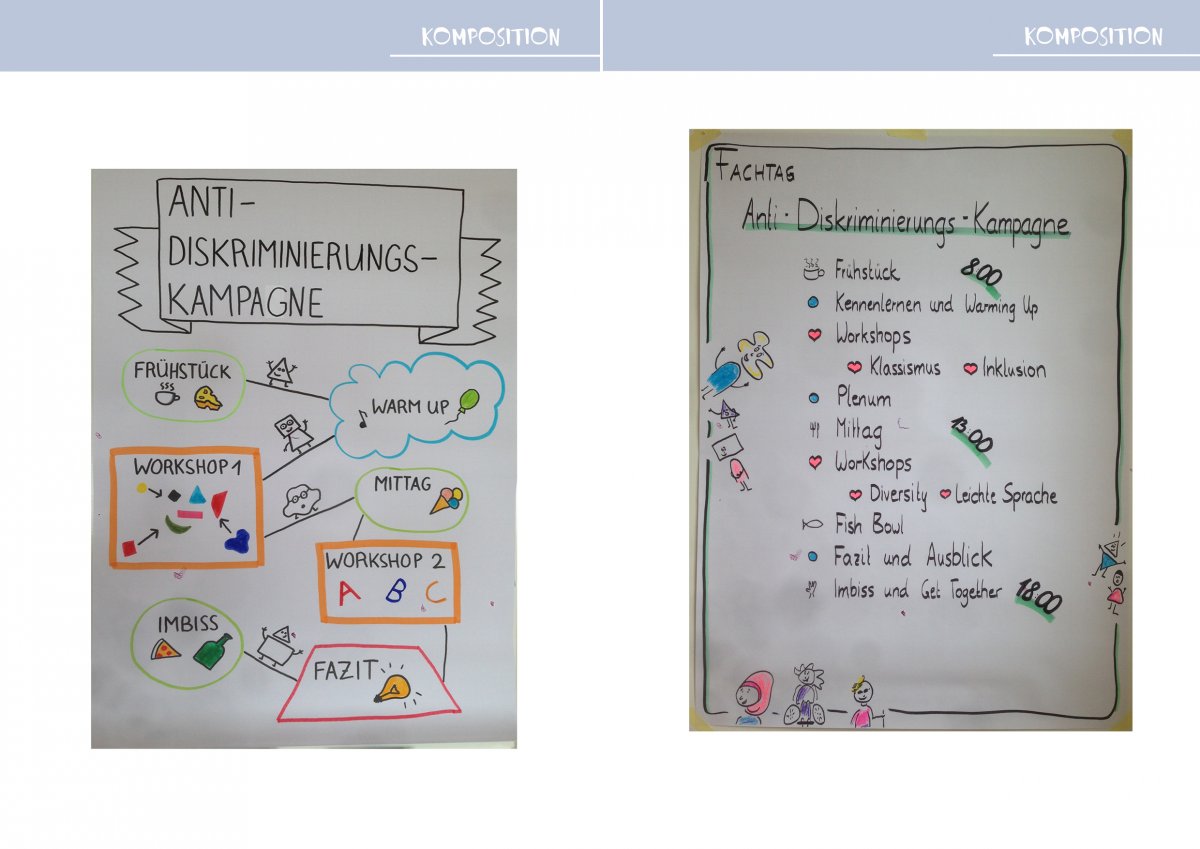 KOMPOSITION
ANTI-
DISKRIMINIERUNGS-
KAMPAGNE
FRÜHSTÜCK
WARM UP
WORKSHOP 1
MITTAG
WORKSHOP 2
A B C
IMBISS
FAZIT
KOMPOSITION
FACHTAG
Anti-Diskriminierungs-Kampagne
Frühstück 8.00
Kennenlernen und Warming Up
Workshops
Klassismus Inklusion
Plenum
Mittag 13:00
Workshops
Diversity Leichte Sprache
Fish Bowl
Fazit und Ausblick
Imbiss und Get Together 18.00